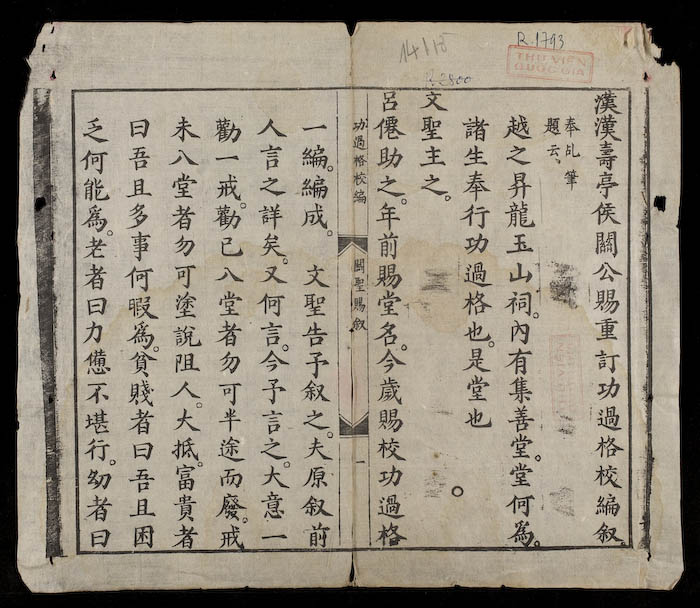 漢漢壽亭侯關公賜重訂功過格校編叙。
奉乩筆
題云、
越之昇龍玉山祠。內有集善堂。堂何爲。
諸生奉行功過格也。是堂也
文聖主之。
呂僊助之。年前賜堂名。今歲賜校功過格
功過格校編
關聖賜叙
一
一編。編成。 文聖告予叙之。夫原叙前
人言之詳矣。又何言。今予言之。大意一
勸一戒。勸已入堂者勿可半途而廢。戒
未入堂者勿可塗說阻人。大抵富貴者
曰吾且多事何暇爲。貧賤者曰吾且困
乏何能爲。老者曰力憊不堪行。幼者曰
14115
R.1793
R.2800
THƯ VIỆN
QUỐC GIA